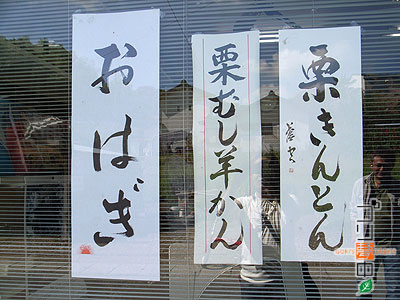 栗きんとん
栗むし羊かん
おはぎ